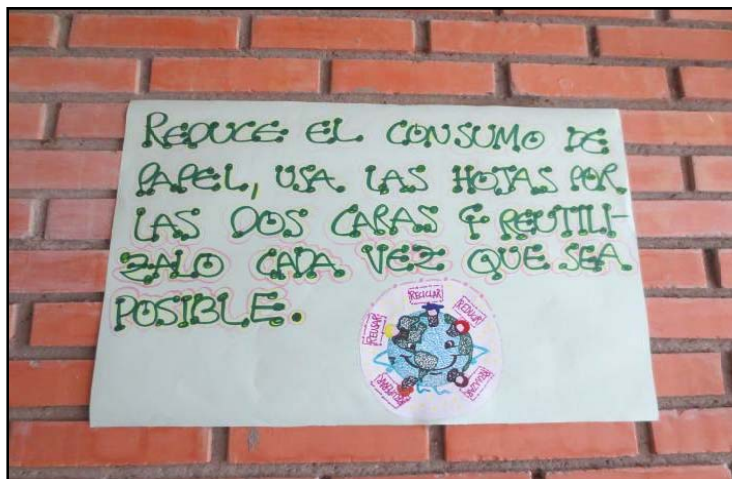 REDUCE EL CONSUMO DE
PAPEL, USA LAS HOJAS POR
LAS DOS CARAS Y REUTILI-
ZALO CADA VEZ QUE SEA
POSIBLE.
RECICLAR
REUSAR